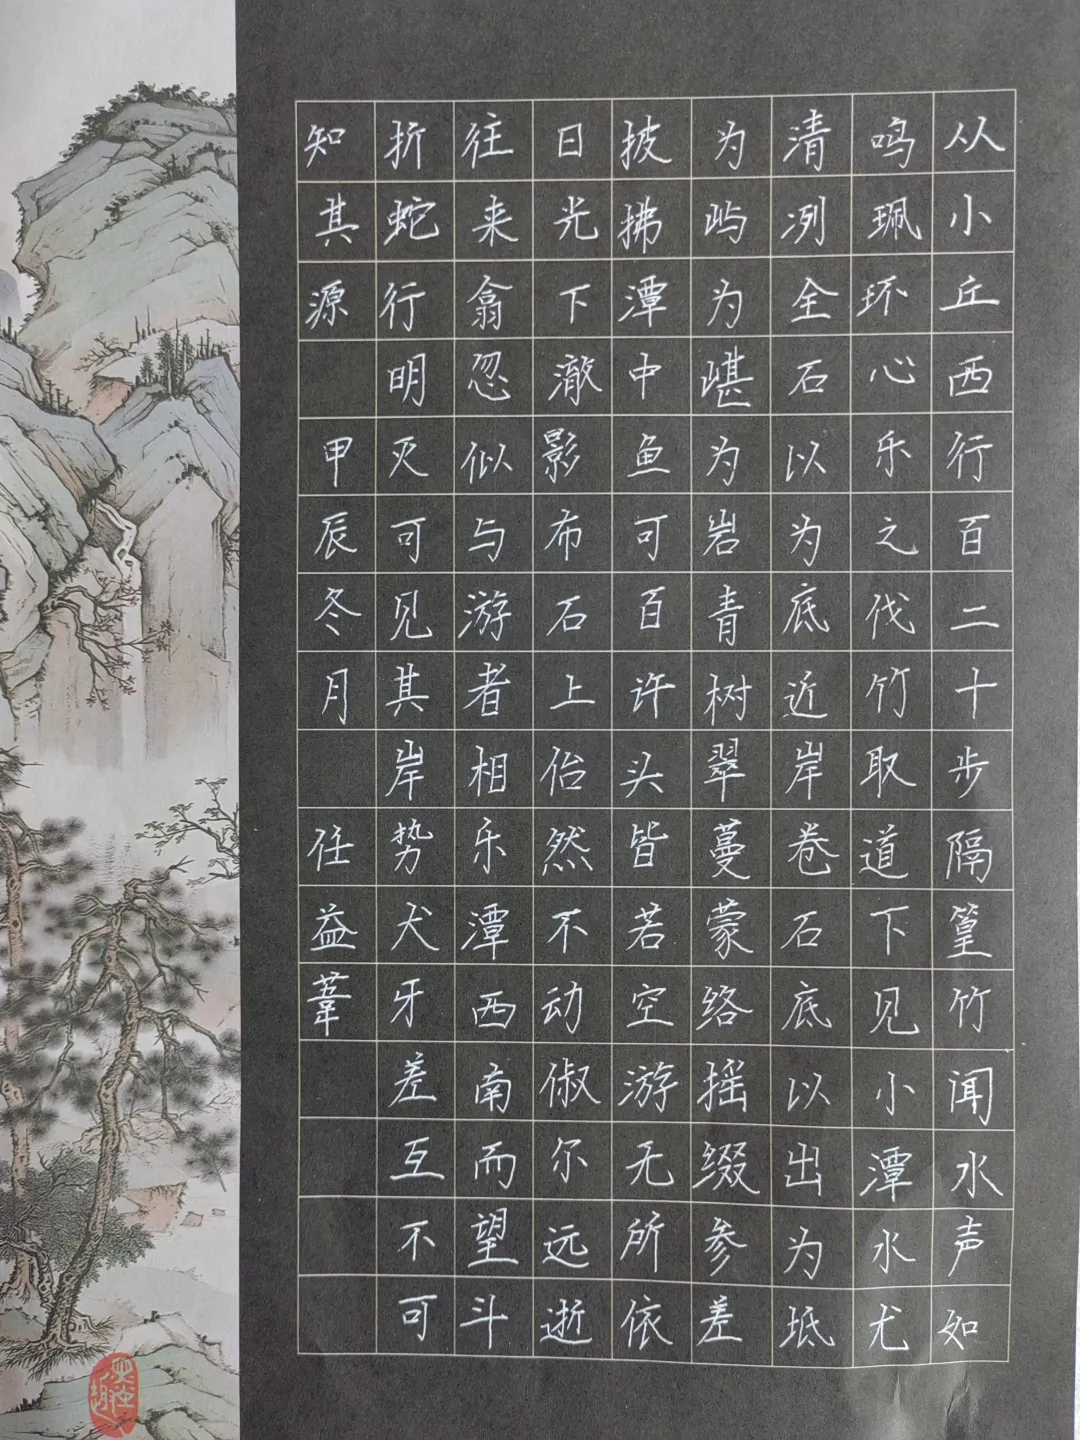 从小丘西行百二十步隔篁竹闻水声如
鸣珮环心乐之伐竹取道下见小潭水尤
清冽全石以为底近岸卷石底以出为坻
为屿为嵁为岩青树翠蔓蒙络摇缀参差
披拂潭中鱼可百许头皆若空游无所依
日光下澈影布石上佁然不动俶尔远逝
往来翕忽似与游者相乐潭西南而望斗
折蛇行明灭可见其岸势犬牙差互不可
知其源 甲辰冬月 任益葦